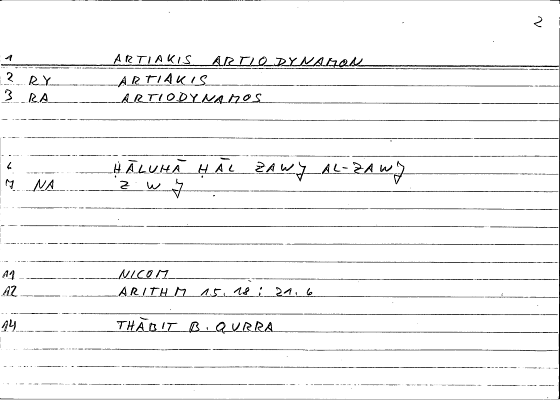 2
1 ARTIAKIS ARTIODYNAMON
2 RY ARTIAKIS
3 RA ARTIODYNAMOS
6 ḤĀLUHĀ ḤĀL ZAWǦ AL-ZAWǦ
7 NA Z W Ǧ
A1 NICOM
A2 ARITHM 15.18; 21.6
A4 THĀBIT B. QURRA